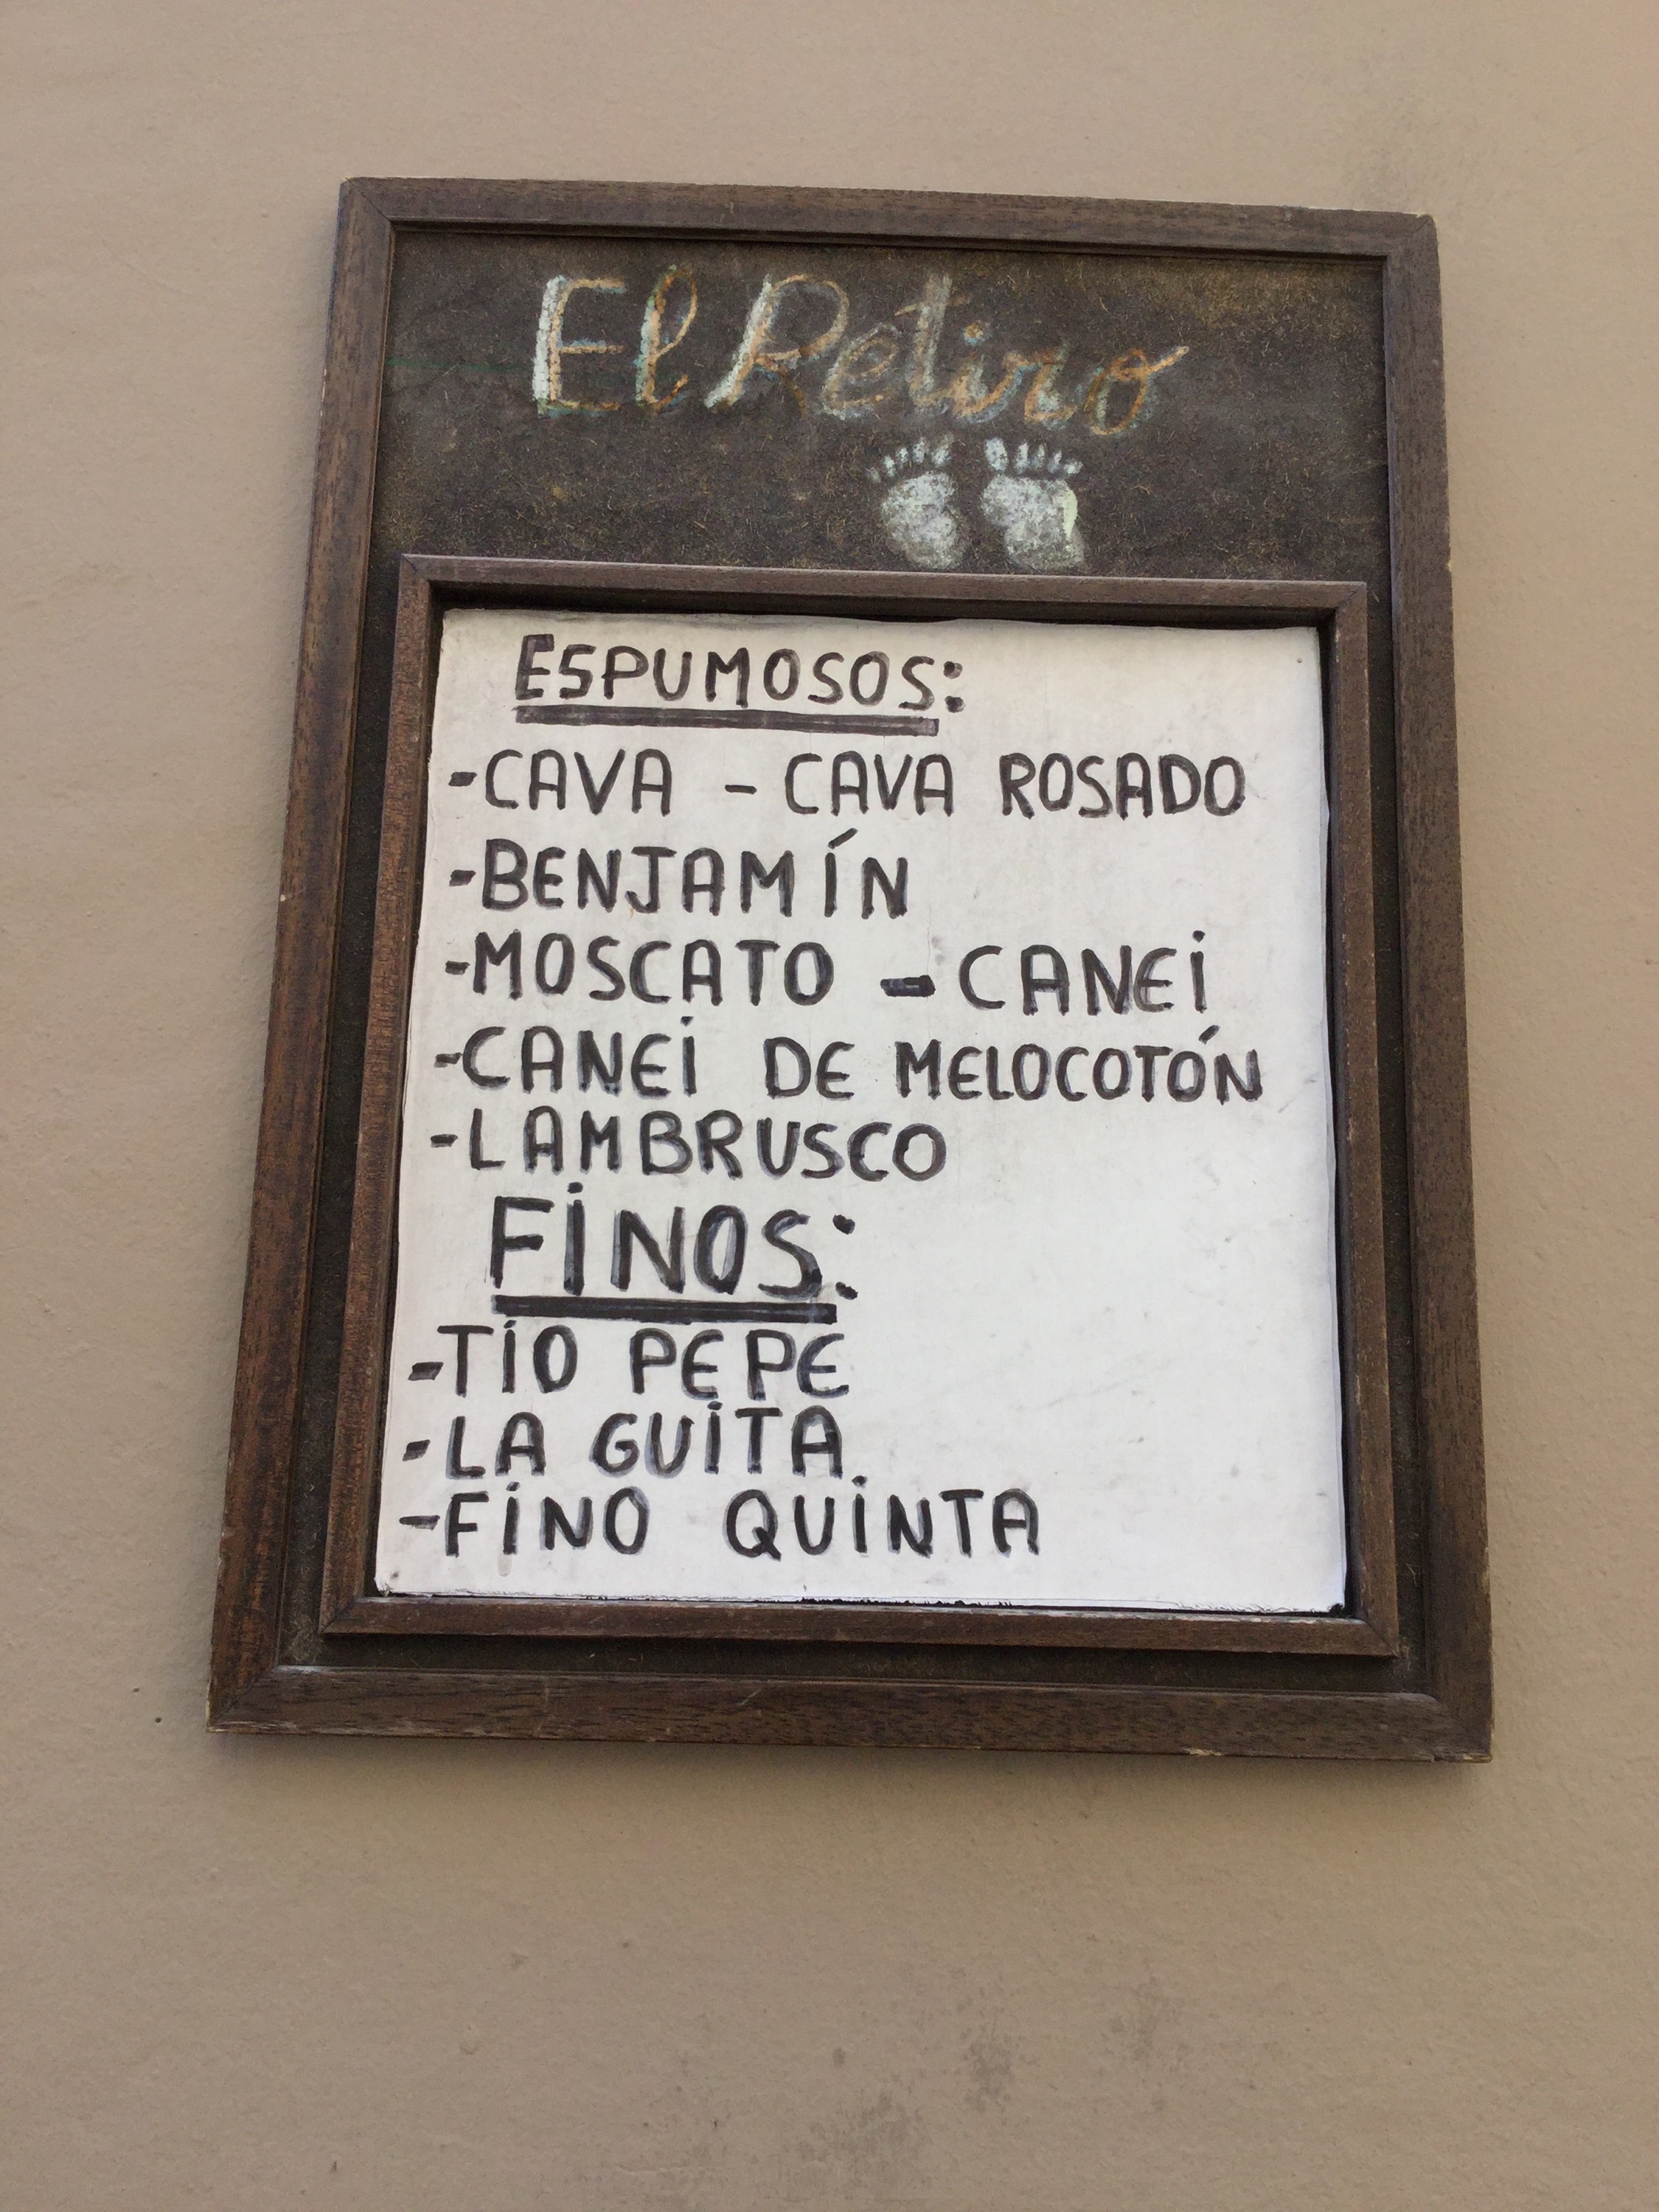 El Retiro
ESPUMOSOS:
-CAVA - CAVA ROSADO
-BENJAMÍN
-MOSCATO - CANEi
-CANEi DE MELOCOTÓN
-LAMBRUSCO
FiNOS:
-TiO PEPE
-LA GUiTA
-FiNO QUiNTA